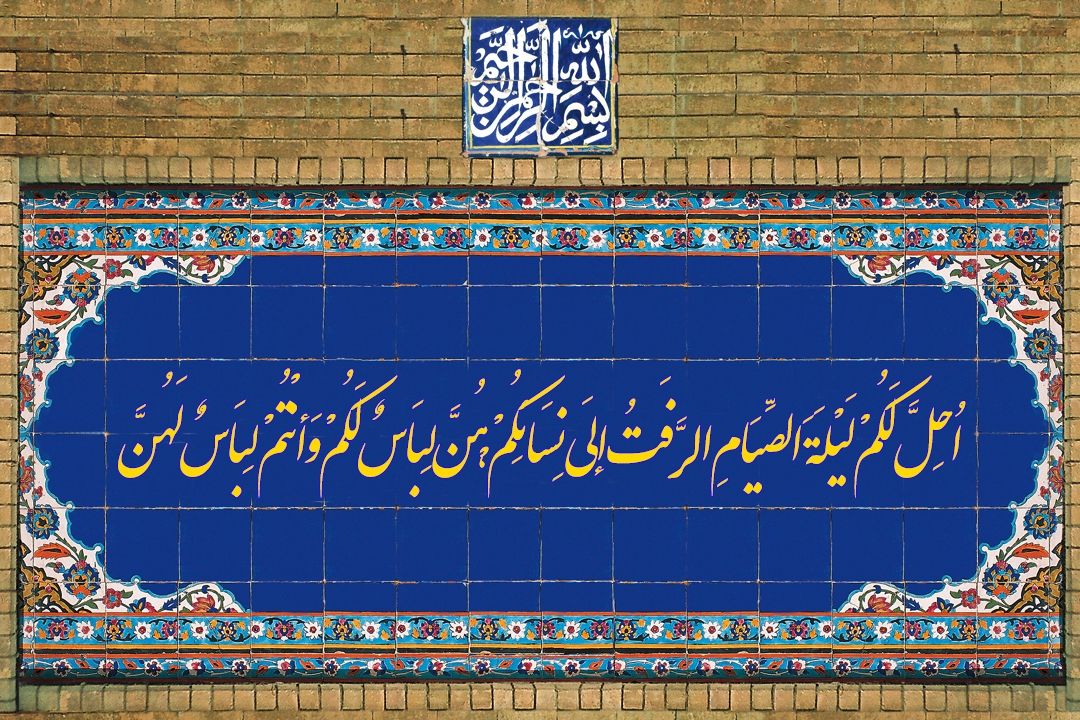 بسم الله الرحمن الرحیم
اُحِلَّ لَكُمْ لَيْلَةَ الصِّيَامِ الرَّفَثُ إِلىَ نِسَائِكُمْ هُنَّ لِبَاسٌ لَكُمْ وَأَنْتُمْ لِبَاسٌ لَهُنَّ